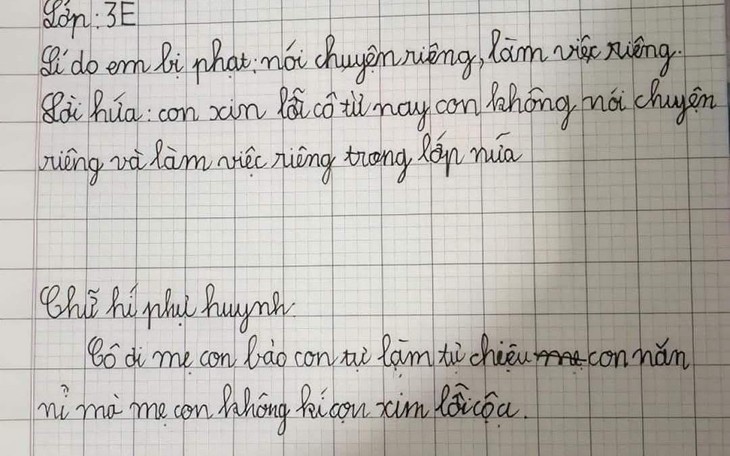 Lớp: 3E
Lí do em bị phạt: nói chuyện riêng, làm việc riêng.
Lời hứa: con xin lỗi cô từ nay con không nói chuyện
riêng và làm việc riêng trong lớp nữa
Chữ kí phụ huynh:
Cô ơi mẹ con bảo con tự làm tự chiệu con năn
nỉ mà mẹ con không kí con xin lỗi cô ạ.